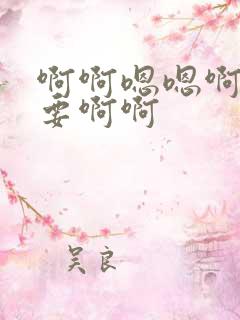 啊啊嗯嗯啊
要啊啊
吴良